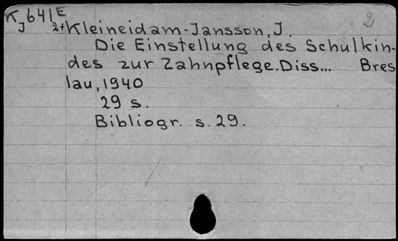 K641E 2
J 2+Kleineidam-Jansson, J.
Die Einstellung des Schulkin-
des zur Zahnpflege. Diss... Bres
lau, 1940
29 s.
Bibliogr. s. 29.